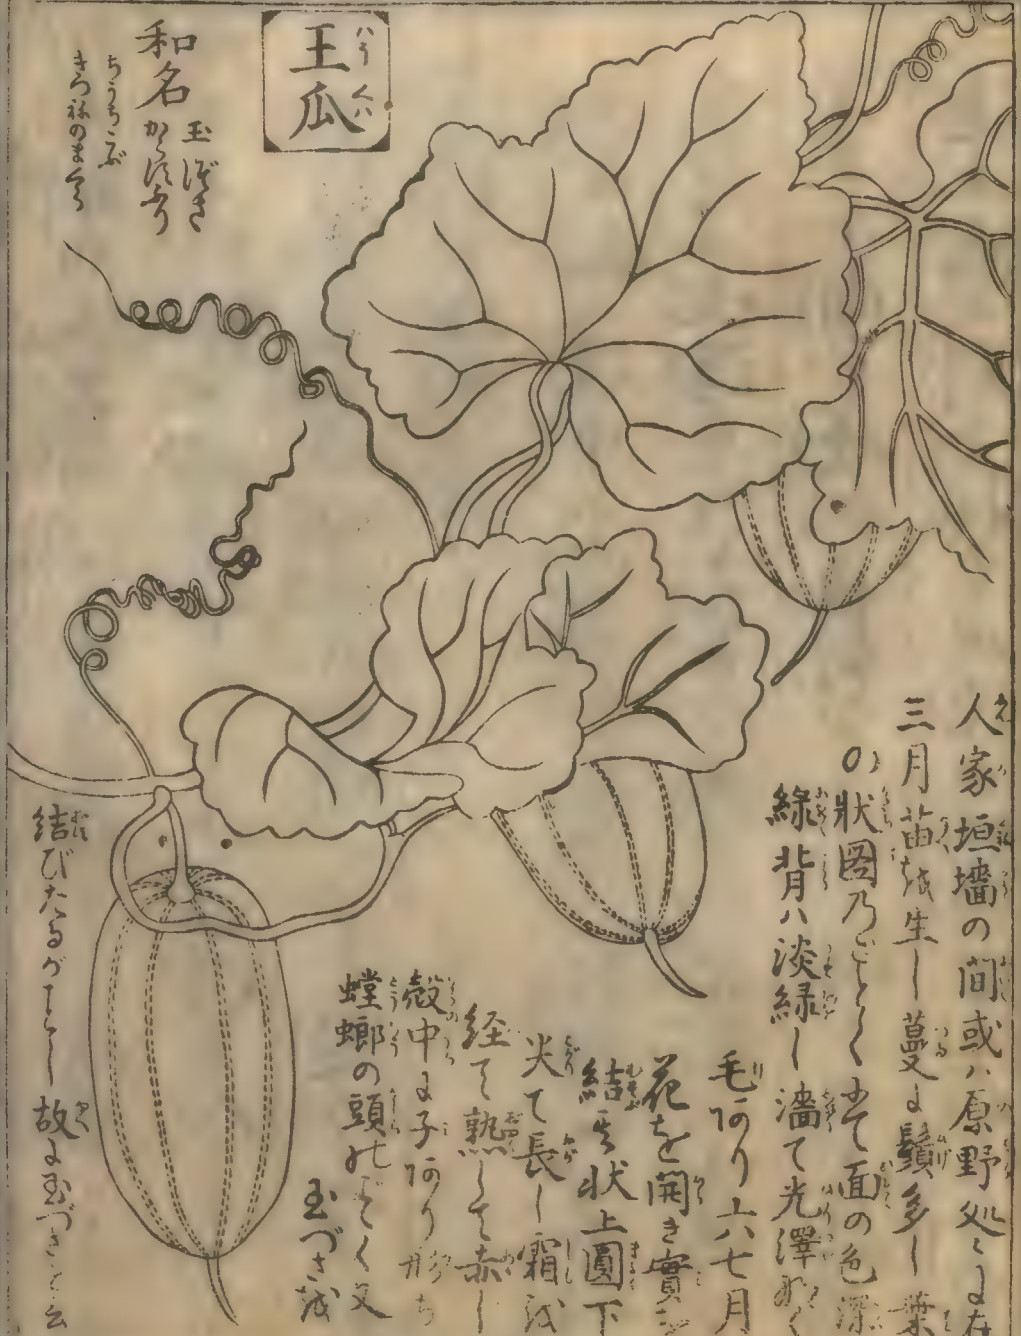 王瓜
和名
玉づさ
からすうり
ちうちこぶ
きつねのまくら
人家垣墻の間或ハ原野処々に在
三月苗を生し蔓に鬚多し葉
の状図乃ごとくにて面の色深
緑背ハ淡緑し濇て光澤なく
毛あり六七月
花を開き實を
結ぶ状上圓下
尖て長し霜を
経て熟して赤し
殻中に子あり形ち
螳螂の頭のごとく又
玉づさを
結びたるがごとし故に玉づさと云